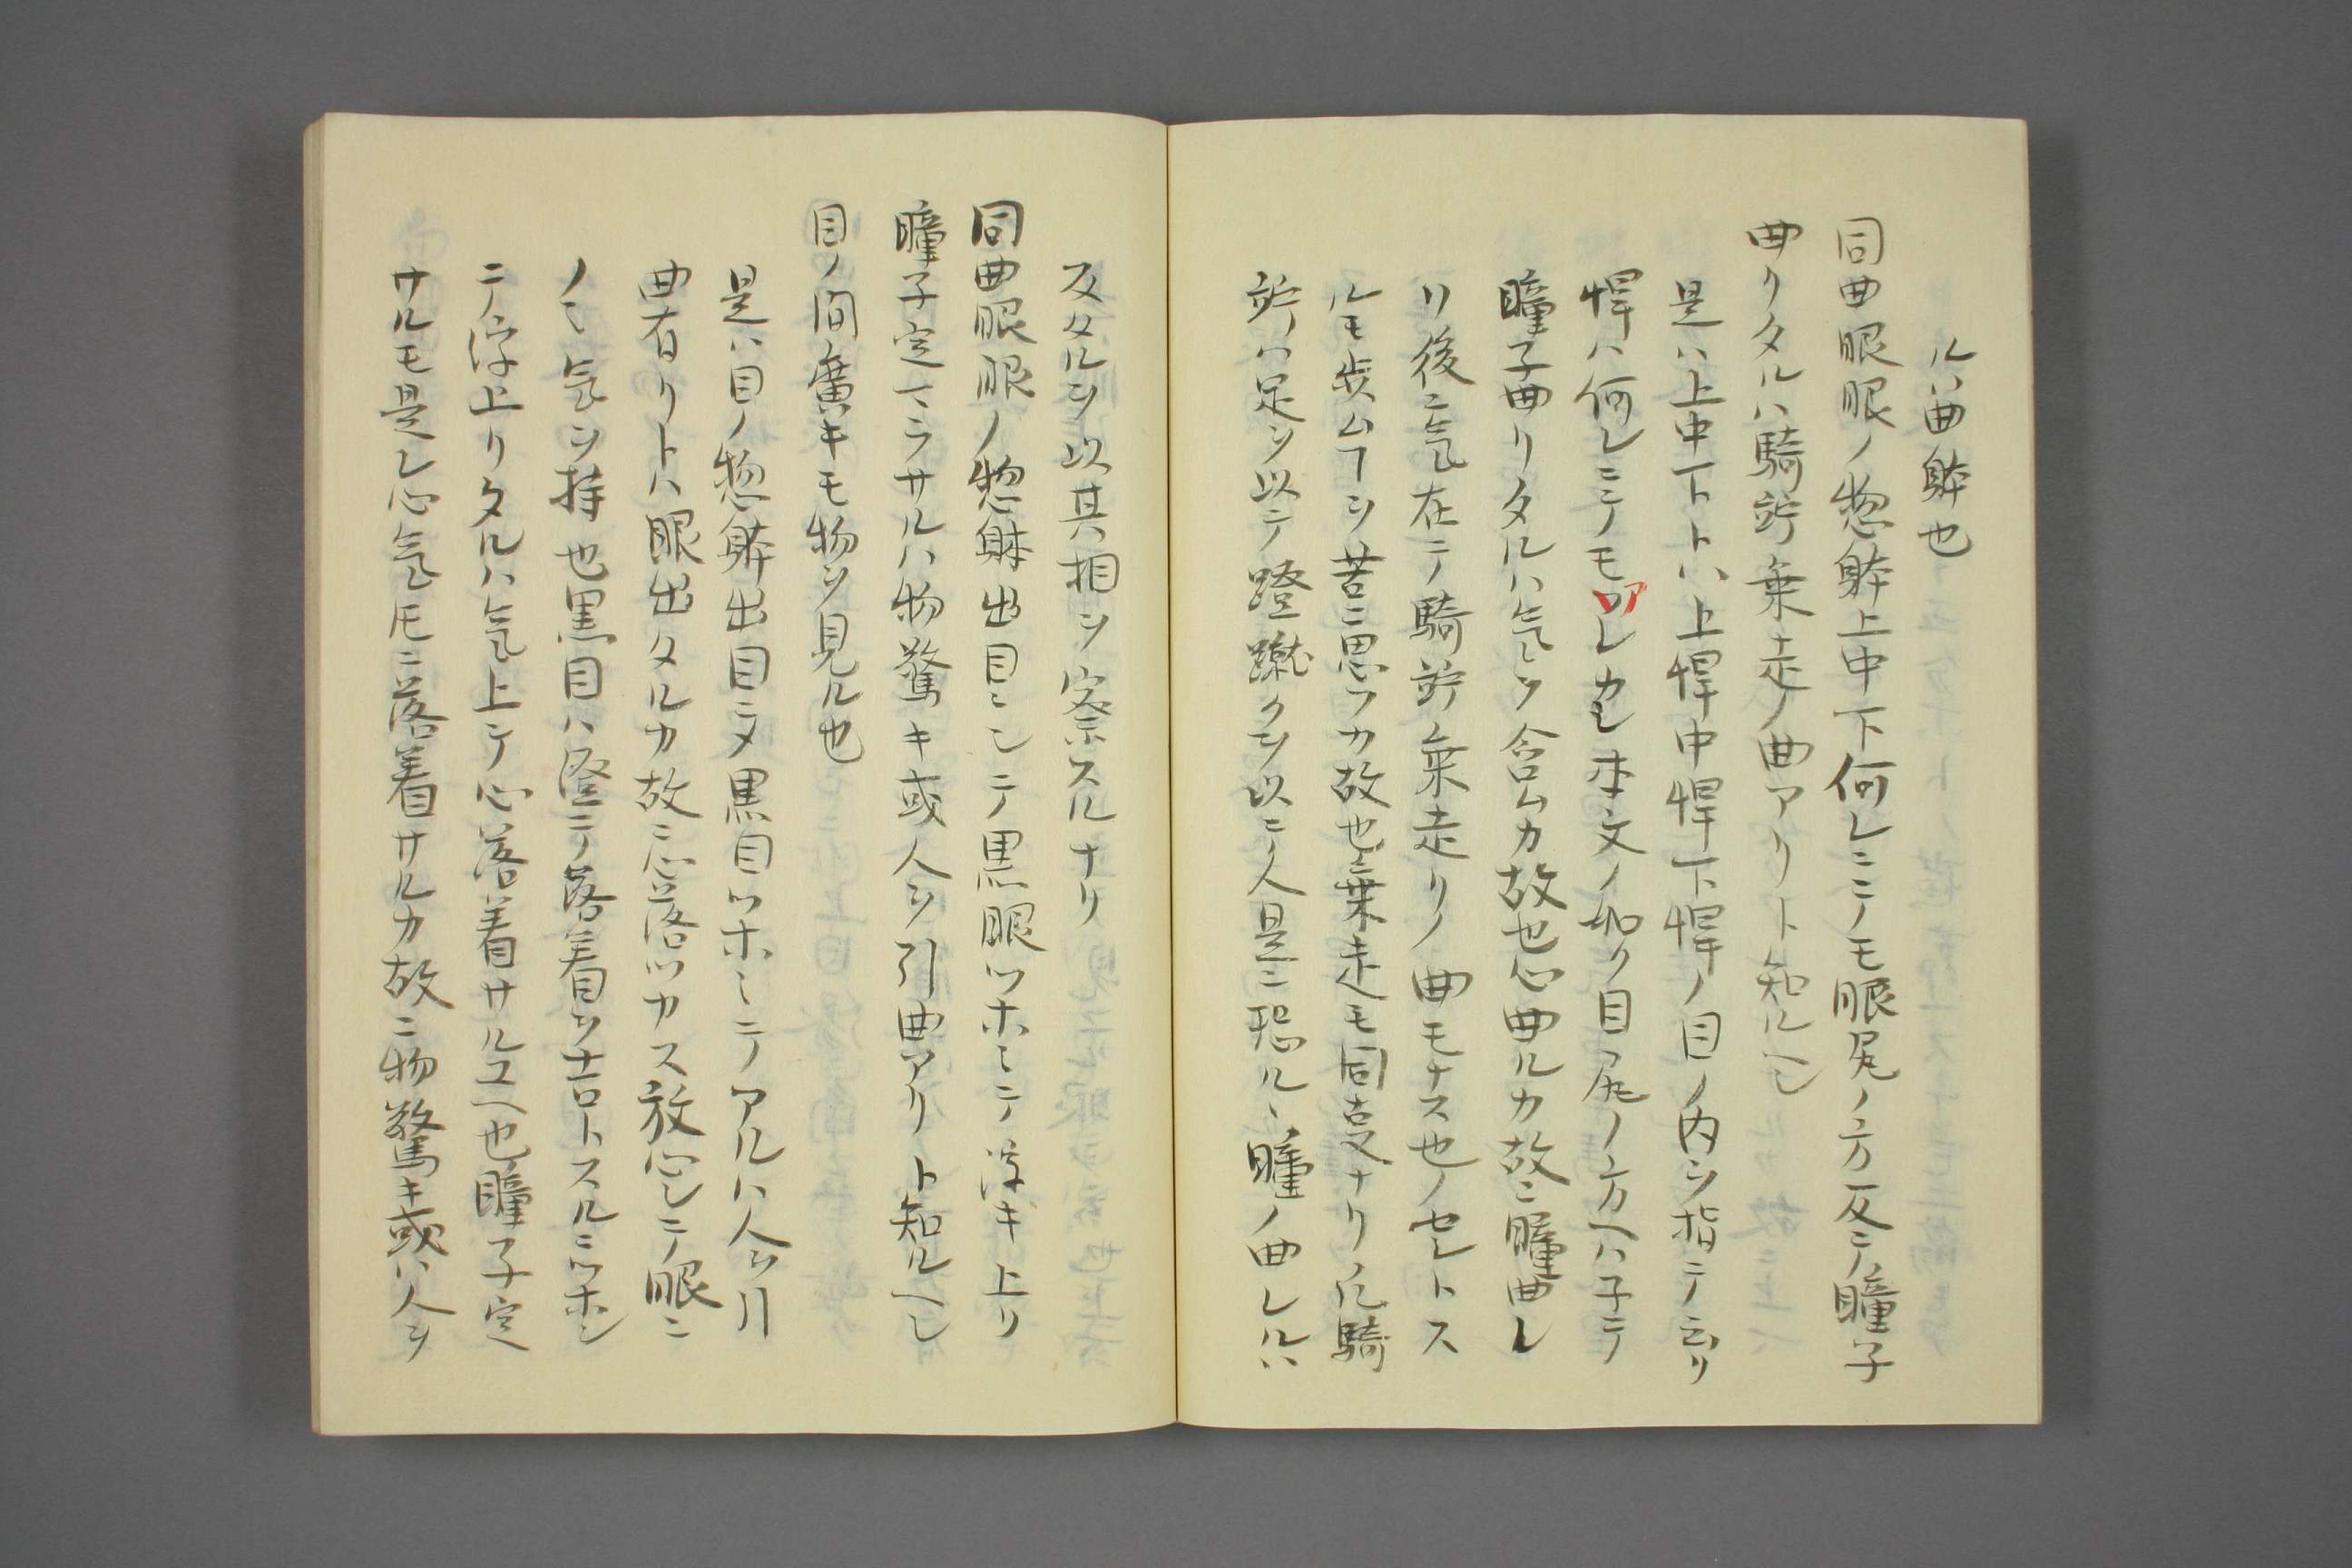 ルハ曲躰也
同曲眼眼ノ惣躰上中下何レニテモ眼尻ノ方反テ瞳子
曲リタルハ騎訢乗走ノ曲アリト知ルヘシ
是ハ上中下トハ上悍中悍下悍ノ目ノ内ヲ指テ云リ
悍ハ何レニテモアレカシ本文ノ如ク目尻ノ方ヘハ子テ
瞳子曲リタルハ気ヲ含ムカ故也心曲ルカ故ニ瞳曲レ
リ後ニ気在テ騎訢乗走リノ曲モナス也ノセレトス
ルモ歩ムヿヲ苦ニ思フカ故也乗走モ同意ナリ凡騎
訢ハ足ヲ以テ蹬蹴クヲ以テ人是ニ恐ル瞳ノ曲レルハ
反タルヲ以其相ヲ察スルナリ
同曲眼眼ノ惣躰出目ニシテ黒眼ツホミテ浮キ上リ
瞳子定マラサルハ物驚キ或人ヲ引曲アリト知ルヘシ
目ノ間廣キモ物ヲ見ル也
是ハ目ノ惣躰出目ニメ黒目ツホミテアルハ人ヲ引
曲有リトハ眼出タルカ故ニ心落ツカス放心シテ眼ニ
ノミ気ヲ持也黒目ハ澄テ落着ヲ吉トスルニツホン
テ浮上リタルハ気上テ心落着サルユヘ也瞳子定
サルモ是レ心気圧ニ落着サルカ故ニ物驚キ或ハ人ヲ